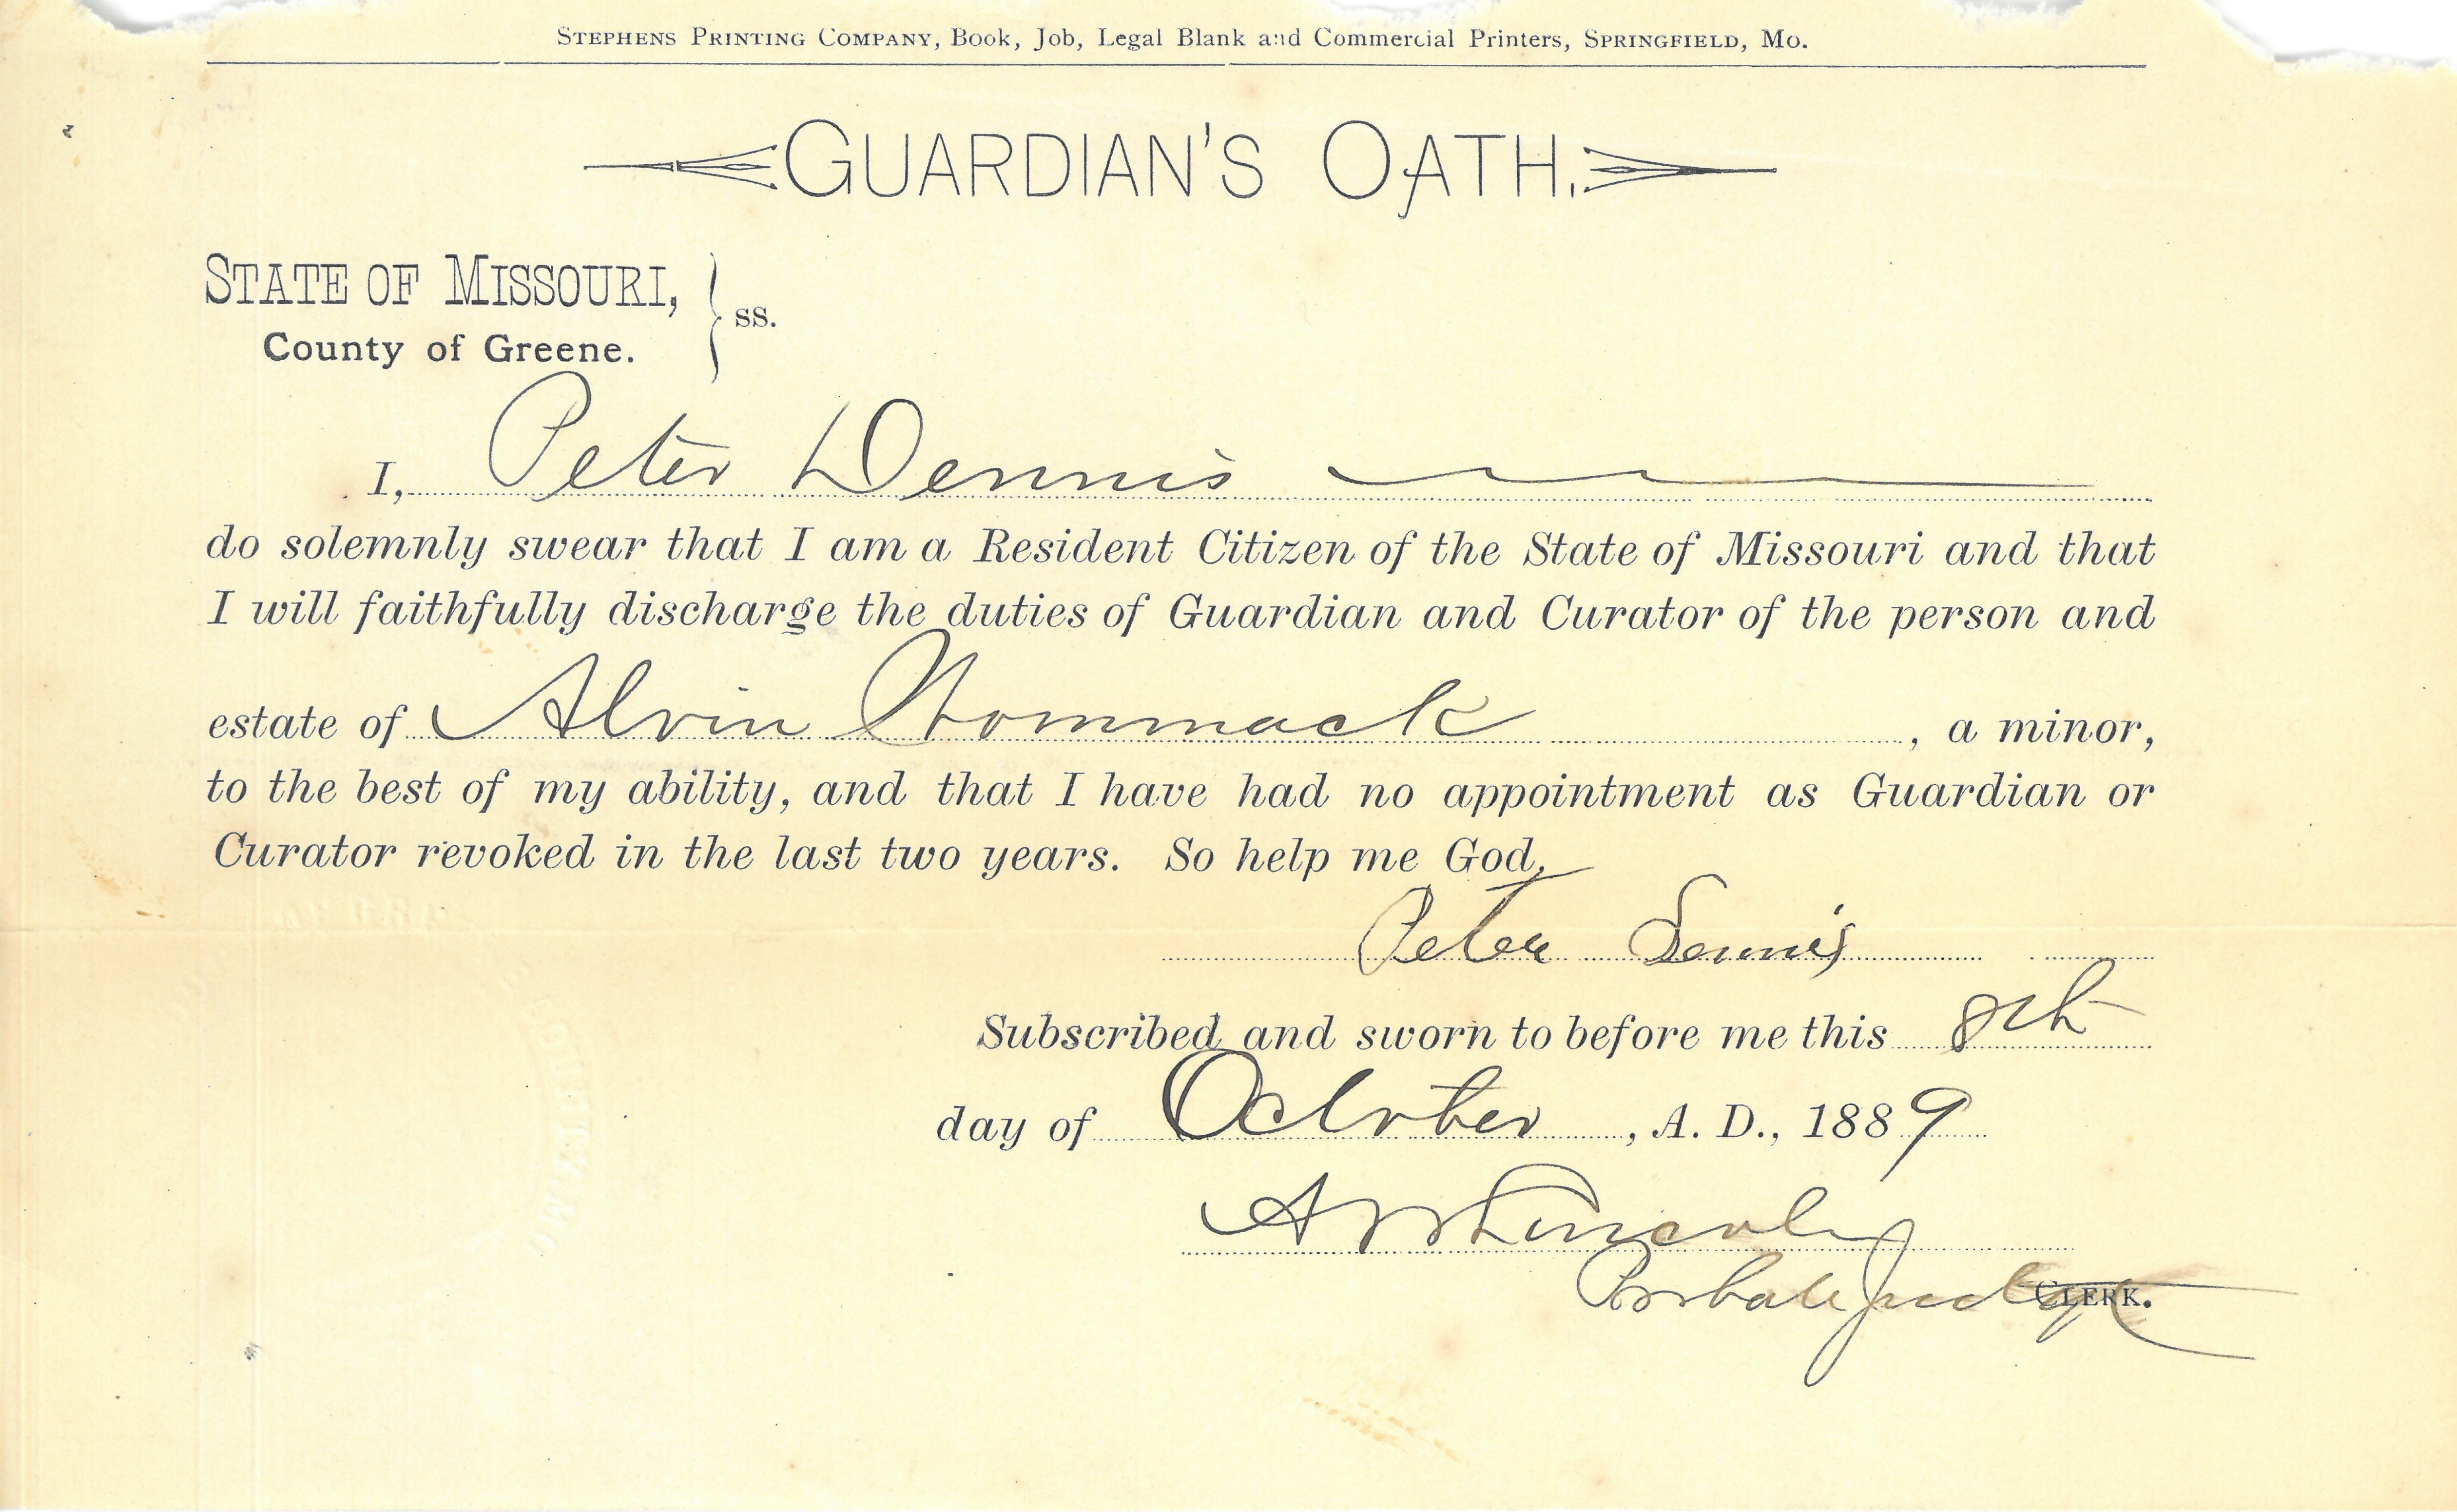 STEPHENS PRINTING COMPANY, Book, Job, Legal Blank and Commercial Printers, SPRINGFIELD, MO.
GUARDIAN'S OATH.
STATE OF MISSOURI,
County of Greene. } ss.
I, Peter Dennis
do solemnly swear that I am a Resident Citizen of the State of Missouri and that
I will faithfully discharge the duties of Guardian and Curator of the person and
estate of Alvin Wommack, a minor,
to the best of my ability, and that I have had no appointment as Guardian or
Curator revoked in the last two years. So help me God,
Peter Dennis
Subscribed and sworn to before me this 8th
day of October, A. D., 1889
Lincoln
Probate Judge CLERK.